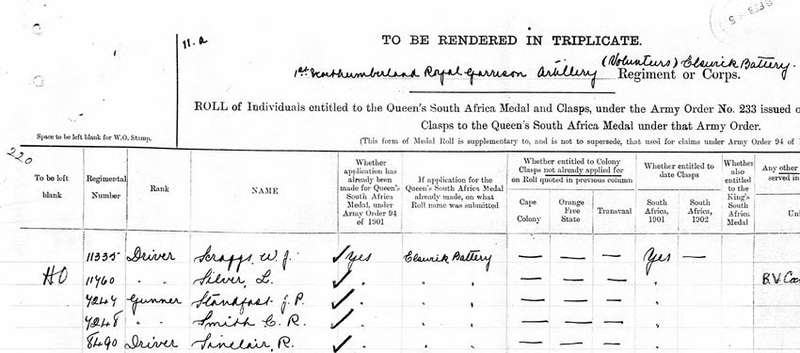 11.a
TO BE RENDERED IN TRIPLICATE.
(Volunteers) Elswick Battery.
1st Northumberland Royal Garrison Artillery Regiment or Corps.
ROLL of Individuals entitled to the Queen's South Africa Medal and Clasps, under the Army Order No. 233 issued
Clasps to the Queen's South Africa Medal under that Army Order.
Space to be left blank for W.O. Stamp.
(This form of Medal Roll is supplementary to, and is not to supersede, that used for claims under Army Order 94 of
220
To be left blank
Regimental Number
Rank
NAME
Whether application has already been made for Queen's South Africa Medal, under Army Order 94 of 1901
If application for the Queen's South Africa Medal already made, on what Roll name was submitted
Whether entitled to Colony Clasps not already applied for on Roll quoted in previous column
Cape Colony
Orange Free State
Transvaal
Whether entitled to date Clasps
South Africa, 1901
South Africa, 1902
Whether also entitled to the King's South Africa Medal
Any other served in
11335 Driver Scraggs, W. J. ✓ Yes Elswick Battery — — — Yes —
HO 11460 " " Silver, L. ✓ " " " — — — "
7247 Gunner Standfast J. P. ✓ " " " — — — "
7248 " " Smith C. R. ✓ " " " — — — "
8490 Driver Sinclair, R. ✓ " " " — — — "